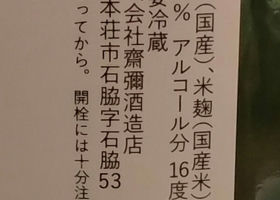 (国産)、米麹(国産米)
% アルコール分 16度
要冷蔵
会社齋彌酒造店
本荘市石脇字石脇53
ってから。開栓には十分注